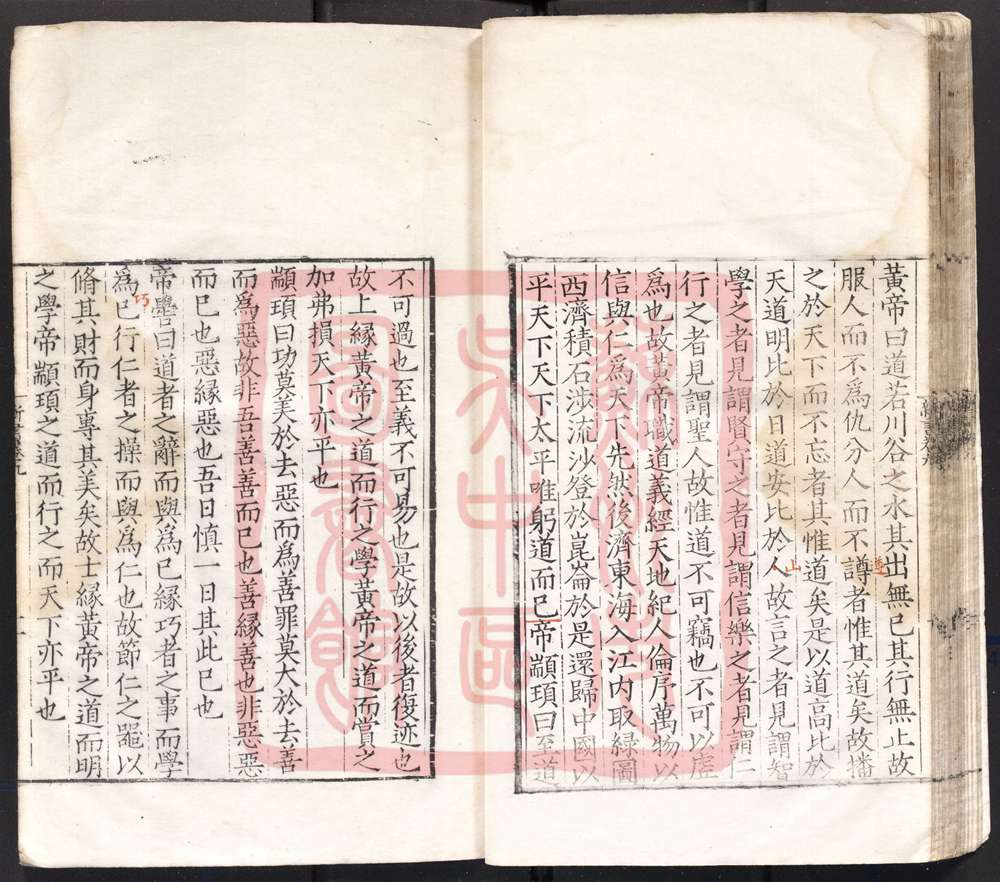 黃帝曰道若川谷之水其出無已其行無止故
服人而不爲仇分人而不譐者惟其道矣故播
之於天下而不忘者其惟道矣是以道高比於
天道明比於日道安比於人故言之者見謂智
山
學之者見謂賢守之者見謂信樂之者見謂仁
行之者見謂聖人故惟道不可竊也不可以虛
爲也故黃帝職道義經天地紀人倫序萬物以
信與仁爲天下先然後濟東海入江內取綠圖
西濟積石涉流沙登於崑崙於是還歸中國以
平天下天下太平唯躬道而已帝顓頊曰至道
不可過也至義不可易也是故以後者復迹也
故上緣黃帝之道而行之學黃帝之道而賞之
加弗損天下亦平也
顓頊曰功莫美於去惡而爲善罪莫大於去善
而爲惡故非吾善善而已也善緣善也非惡惡
而已也惡緣惡也吾日慎一日其此已也
帝嚳曰道者之辭而與爲已緣巧者之事而學
巧
爲已行仁者之操而與爲仁也故節仁之器以
脩其財而身專其美矣故士緣黃帝之道而明
之學帝顓頊之道而行之而天下亦平也
蘇州市
吳中區
圖書館